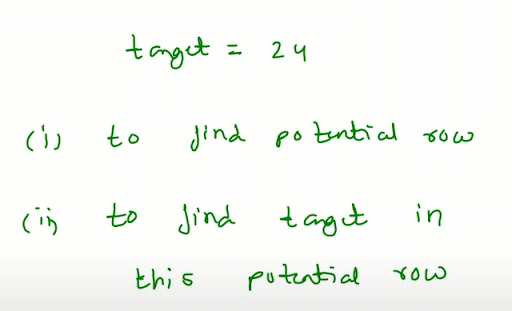 target = 24
(i) to find potential row
(ii) to find target in
this potential row